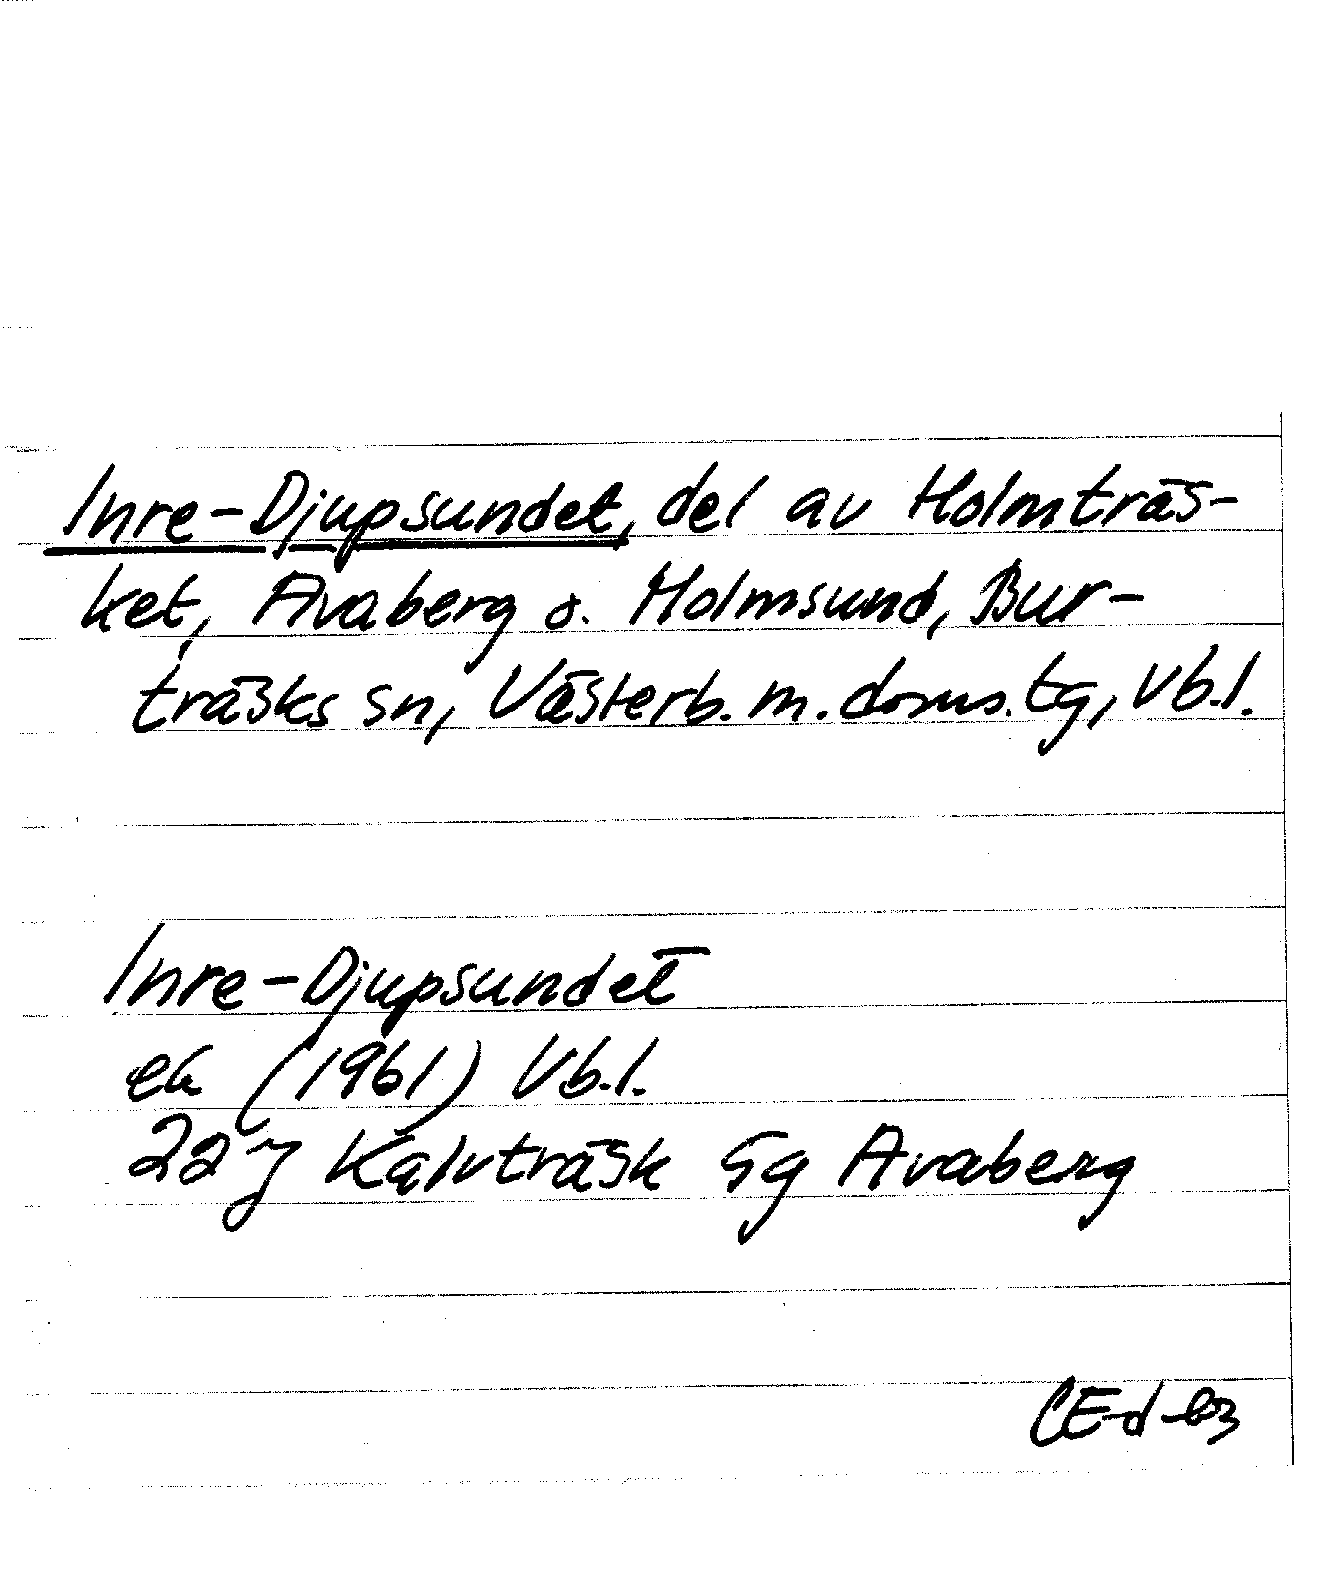 Inre-Djupsundet, del av Holmträs-
ket, Avaberg o. Holmsund, Bur-
träsks sn, Västerb. m. doms. tg, Vb.l.
Inre-Djupsundet
ek (1961) Vb.l.
22J Kalvträsk 5g Avaberg
CEd-83